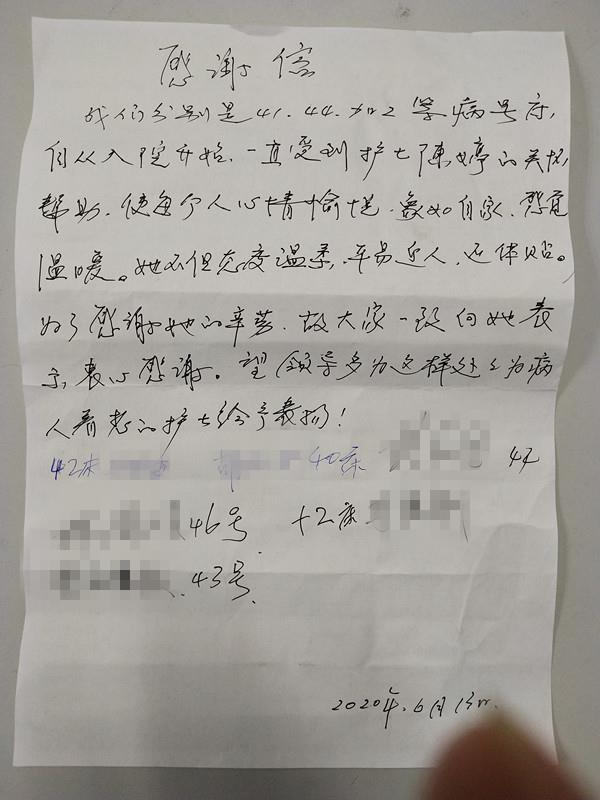 感谢信
我们分别是41.44.加2等病号房,
自从入院开始.一直受到护士陈婷的关怀
帮助.使每个人心情愉悦.象如自家.
温暖。她不但态度温柔.平易近人.还体贴。
为了感谢她的辛苦.故大家一致向她表
示衷心感谢。望领导多为这样处处为病
人着想的护士给予表扬!
42床 40床 44
46号 +2床
43号.
2020年.6月13日.